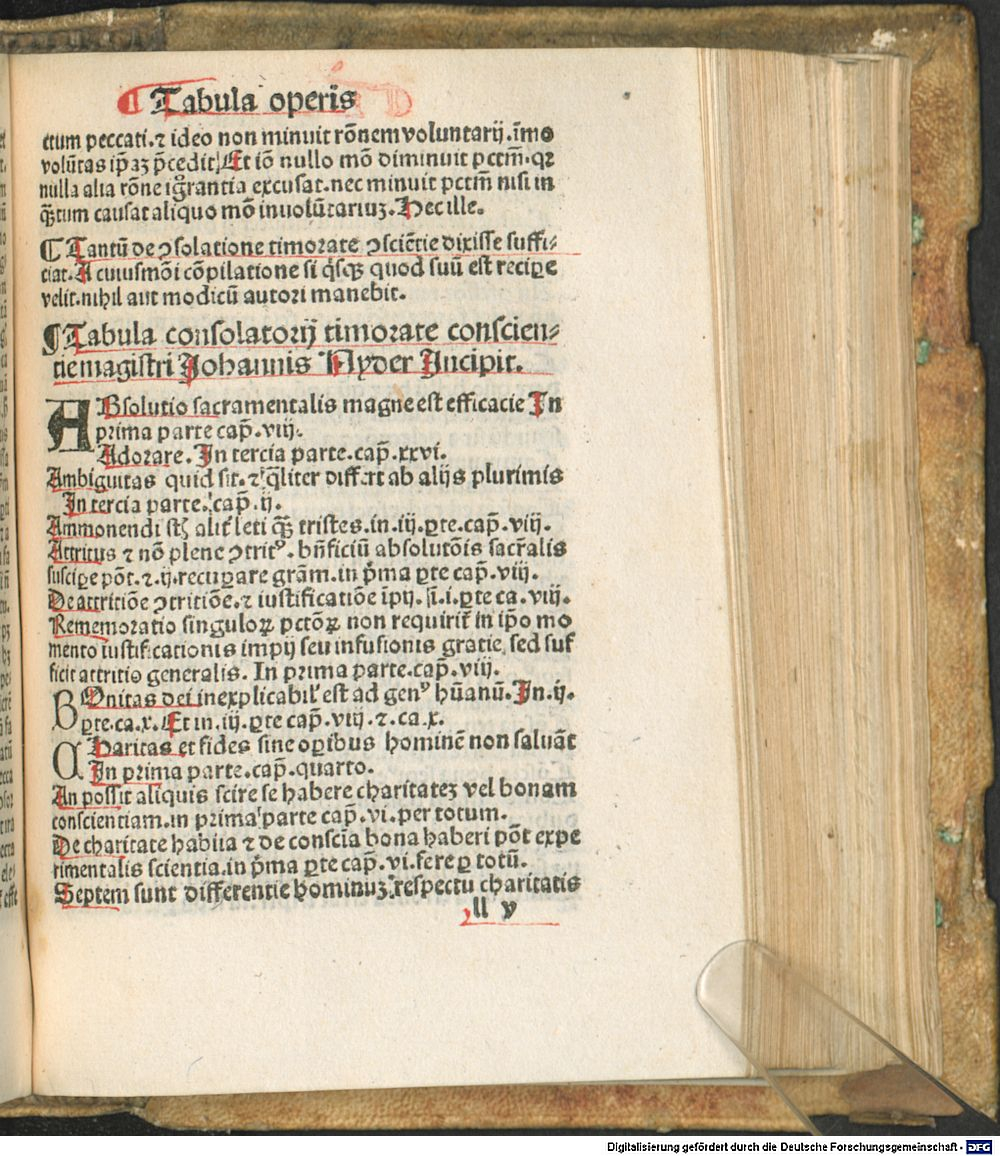 Tabula operis
ctum peccati.⁊ ideo non minuit rōnem voluntarij.īmo
volūtas ip̄aꝫ p̄cedit Et iō nullo mō diminuit pctm̄.qꝛ
nulla alia rōne igrantia excusat.nec minuit pctm̄ nisi in
q̄tum causat aliquo mō inuolūtariuꝫ.Hec ille.
¶ Tantū de ꝯsolatione timorate ꝯsciētie dixisse suffi⸗
ciat.A cuiusmōi cōpilatione si q̇sqꝫ quod suū est recipe
velit.nihil aut modicū autori manebit.
¶Tabula consolatorij timorate conscien⸗
tie magistri Johannis Nyder Incipit.
ABsolutio sacramentalis magne est efficacie In
prima parte cap̄.viij.
Adorare. In tercia parte.cap̄.xxvi.
Ambiguitas quid sit.⁊ q̄liter differt ab alijs plurimis
In tercia parte.cap̄.ij.
Ammonendi st̄ alit̄ leti q̄ꝫ tristes.in.iij.ꝑte.cap̄.viij.
Attritus ⁊ nō plene ꝯtritꝰ.bn̄ficiū absolutōis sacr̄alis
suscipe pōt.⁊.ij.recuꝑare grām.in p̄ma ꝑte cap̄.viij.
De attritiōe ꝯtritiōe.⁊ iustificatiōe īpij.ī.i.ꝑte ca.viij.
Rememoratio singuloꝝ pctōꝝ non requirit̄ in ip̄o mo
mento iustificationis impij seu infusionis gratie sed suf
ficit attritio generalis. In prima parte.cap̄.viij.
BOnitas dei inexplicabil' est ad genꝰ hūanū.In.ij.
ꝑte.ca.x.Et in.iij.ꝑte cap̄.viij.⁊.ca.x.
CHaritas et fides sine oꝑibus hominē non saluāt
In prima parte.cap̄.quarto.
An possit aliquis scire se habere charitateꝫ vel bonam
conscientiam.in prima parte cap̄.vi.per totum.
De charitate habita ⁊ de conscīa bona haberi pōt expe
rimentalis scientia.in p̄ma ꝑte cap̄.vi.fere ꝑ totū.
Septem sunt differentie hominuꝫ respectu charitatis
ll v
Digitalisierung gefördert durch die Deutsche Forschungsgemeinschaft - DFG